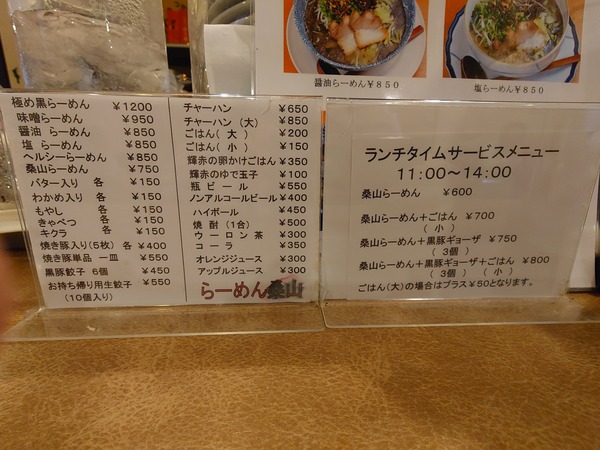 醤油らーめん￥８５０
塩らーめん￥８５０
極め黒らーめん ￥1200
味噌らーめん ￥950
醤油 らーめん ￥850
塩 らーめん ￥850
ヘルシーらーめん ￥850
桑山らーめん ￥750
バター入り 各 ￥150
わかめ入り 各 ￥150
もやし 各 ￥150
きゃべつ 各 ￥150
キクラ 各 ￥150
焼き豚入り(5枚) 各 ￥400
焼き豚単品 一皿 ￥550
黒豚餃子 6個 ￥450
お持ち帰り用生餃子 ￥550
(10個入り)
チャーハン ￥650
チャーハン (大) ￥850
ごはん( 大 ) ￥200
ごはん( 小 ) ￥150
輝赤の卵かけごはん ￥350
輝赤のゆで玉子 ￥100
瓶 ビ ー ル ￥550
ノンアルコールビール ￥400
ハイボール ￥450
焼 酎 (1合) ￥500
ウ ー ロ ン 茶 ￥300
コ ー ラ ￥350
オレンジジュース ￥300
アップルジュース ￥300
らーめん桑山
ランチタイムサービスメニュー
11:00～14:00
桑山らーめん ￥600
桑山らーめん＋ごはん ￥700
( 小 )
桑山らーめん＋黒豚ギョーザ ￥750
( 3個 )
桑山らーめん＋黒豚ギョーザ＋ごはん ￥800
( 3個 ) ( 小 )
ごはん(大)の場合はプラス￥50となります。